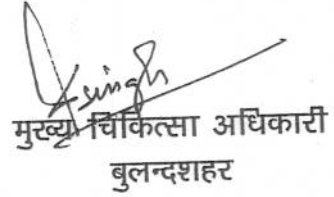 मुख्य चिकित्सा अधिकारी
बुलन्दशहर